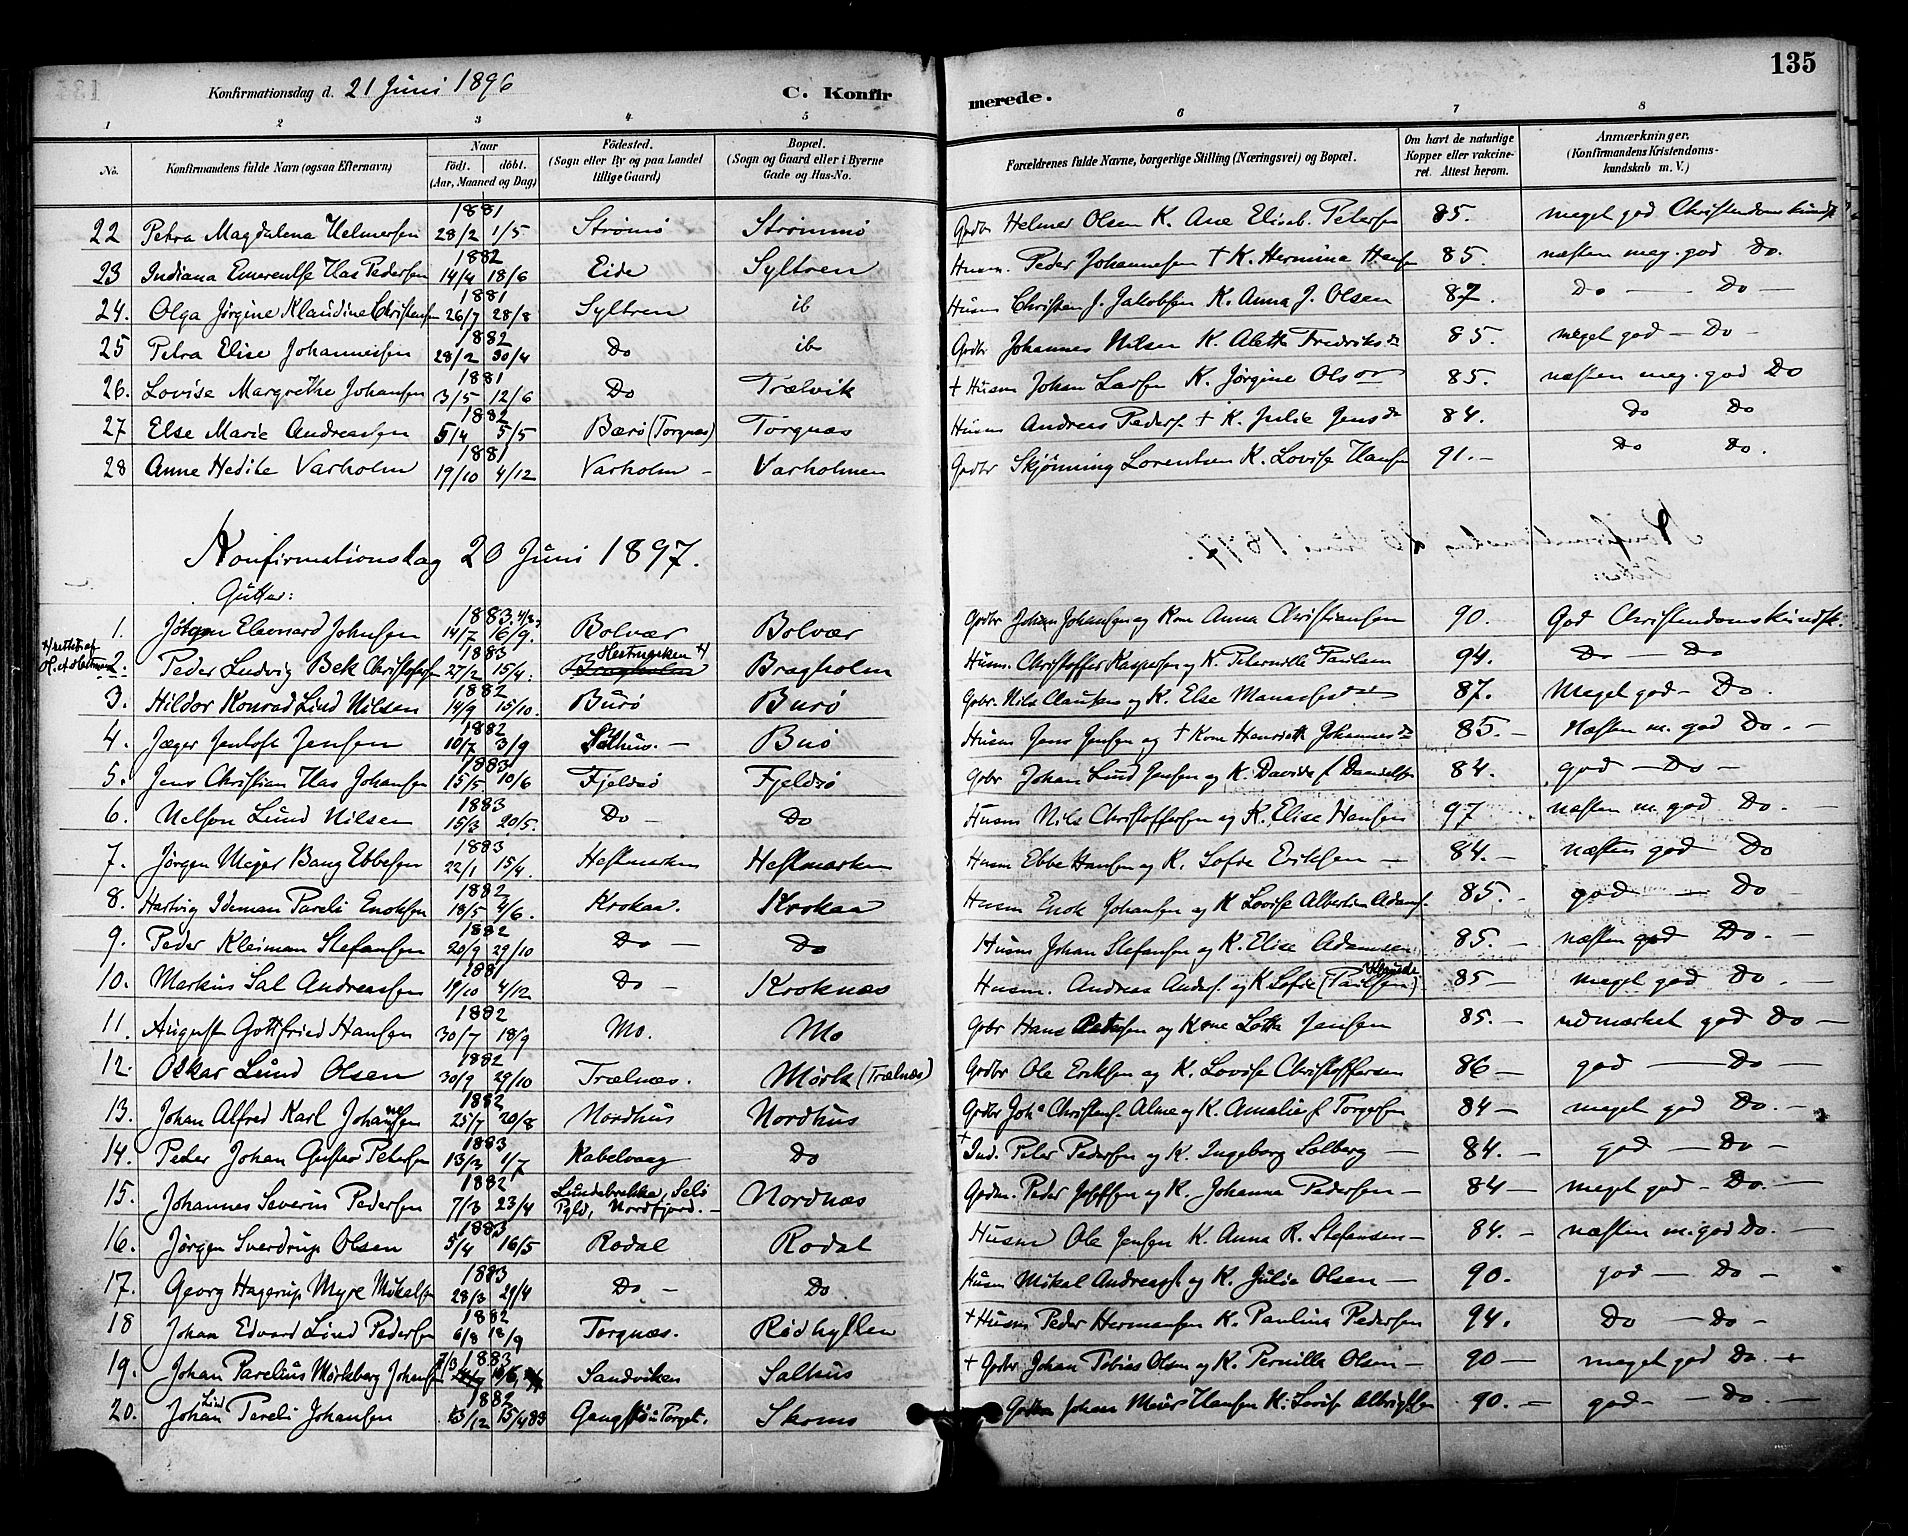 135
Konfirmationsdag d. 21 Juni 1896 C. Konfirmerede.
1 2 3 4 5 6 7 8
No. Konfirmandens fulde Navn (ogsaa Efternavn) Naar Födt. döbt. (Aar, Maaned og Dag) Födested. (Sogn eller By og paa Landet tillige Gaard) Bopæl. (Sogn og Gaard eller i Byerne Gade og Hus-No. Forældrenes fulde Navne, borgerlige Stilling (Næringsvei) og Bopæl. Om havt de naturlige Kopper eller vakcineret. Attest herom. Anmærkninger. (Konfirmandens Kristendomskundskab m. V.)
22 Petra Magdalena Helmersen 1881 28/2 1/5 Strømø Strømmø Grdbr Helmer Olsen K. Ane Elisab. Petersen 85. meget god Christendomskundsk.
23 Indiana Emerentse Has Pedersen 1882 14/4 18/6 Eide Syltren Husm. Peder Johannesen + K. Hermina Hansen 85. næsten meg. god Do.
24. Olga Jørgine Klaudine Christensen 1881 26/7 28/8 Syltren ib Husm Christen J. Jakobsen K. Anna J. Olsen 87. Do — Do —
25 Petra Elise Johannesen 1882 28/2 30/4 Do ib Grdbr Johannes Nilsen K. Aletta Fredriksdr 85. meget god — Do —
26. Lovise Margrethe Johansen 1881 3/5 12/6 Do Trælvik + Husm Johan Larsen K. Jørgine Olsdr 85. næsten meg. god Do
27 Else Marie Andreassen 1882 5/4 5/5 Bærø (Torgnæs) Torgnæs Husm Andreas Peders. + K. Julie Jensdr 84. Do Do
28 Anne Hedile Varholm 1881 19/10 4/12 Varholm — Varholmen Grdbr Skjønning Lorentsen K. Lovise Hansen 91. — Do Do.
Konfirmationsdag 20 Juni 1897.
Gutter:
1. Jörgen Elevnard Johnsen 1883. 14/7 16/9. Bolvær Bolvær Grdbr Johan Johansen og Kone Anna Christiansen 90. God Christendomskundsk.
2. Peder Ludvig Bek Christofersen 1883 27/2 15/4. Hestmarken Bragholm Bragholm Husm. Christoffer Kaspersen og K. Peternille Paulsen 94. Do — Do
3. Hildor Konrad Lind Nilsen 1882 14/9 15/10. Burø Burø Grbr. Nils Clausen og K. Else 87. Meget god — Do.
4. Jæger Jentoft Jensen 1882 10/7 3/9 Salhus. — Buø Husm Jens Jensen og + Kone Johannesdr 85. — Næsten m. god Do. —
5. Jens Christian Has Johansen 1883 15/5 10/6 Fjeldsø Fjeldsø Grbr Johan Lund Jensen og K. Davida f Danielsen 84. god — Do —
6. Nelson Lund Nilsen 1883 15/3 20/5. Do — Do Husm Nils Christoffersen og K. Elise Hansen 97 næsten m. god Do. —
7. Jørgen Meyer Bang Ebbesen 1883 22/1 15/4. Hestmarken Hestmarken Husm Ebbe Hansen og K. Sofie Eriksen — 84. — næsten god Do
8. Hartvig Ideman Pareli Enoksen 1882 18/5 4/6. Krokaa. Krokaa Husm Enok Johansen og K Lovise Albertine Adams. 85. god — Do —
9. Peder Kleiman Stefansen 1882 20/9 29/10 Do — Do Husm Johan Stefansen og K. Elise Adamsen 85. — næsten god Do. —
10. Markus Sal Andreassen 1881 19/10 4/12 Do — Kroknæs Husm. Andreas Anders. og K Sofie (Paulsen) 85 — meget god Do. —
11. August Gottfried Hansen 1882 30/7 18/9 Mo. Mo Grbr Hans Petersen og Kone Lotte Jensen 85. — udmærket god Do —
12. Oskar Lund Olsen 1882 30/9 29/10 Trælnæs. Mørk (Trælnæs) Grdbr Ole Eriksen og K. Lovise Christoffersen 86 — god — Do —
13. Johan Alfred Karl Johannesen 1882 25/7 20/8 Nordhus Nordhus Grdbr Johs Christens. Alme og K. Amalie f Torgersen 84 — meget god Do. —
14. Peder Johan Gustav Petersen 1883 13/3 1/7 Kabelvaag Do + Ind. Peter Pedersen og K. Ingeborg Solberg — 84. — god — Do —
15. Johannes Severin Pedersen 1882 7/3 23/4 Lundebrekke, Selø Pgld, Nordfjord. — Nordnæs Gdm. Peder Josefsen og K. Johanna Pedersen — 84 — meget god — Do. —
16. Jørgen Sverdrup Olsen 1883 5/4 16/5 Rodal Rodal Husm Ole Jensen K. Anna R. Stefansen — 84. — næsten m. god Do. —
17. Georg Hagerup Myre Mikalsen 1883 28/3 29/4 Do — Do Husm Mikal Andreas. og K. Julie Olsen — 90. god — Do —
18 Johan Edvard Lind Pedersen 1882 6/8 18/9 Torgnæs. Rødhyllen + Husm Peder Hermansen K. Paulina Pedersen 94. Do — Do —
19. Johan Parelius Mørkberg Johansen 7/3 1883 Sandviken Salhus + Grdbr Johan Tobias Olsen og K. Pernilla Olsen — 90 — meget god Do. —
20. Johan Lind Pareli Johansen 1882 13/12 15/4 83 i Torget. Skomo Johan Meier Hansen K. Lovise Albrigtsen 90. — god — Do. —